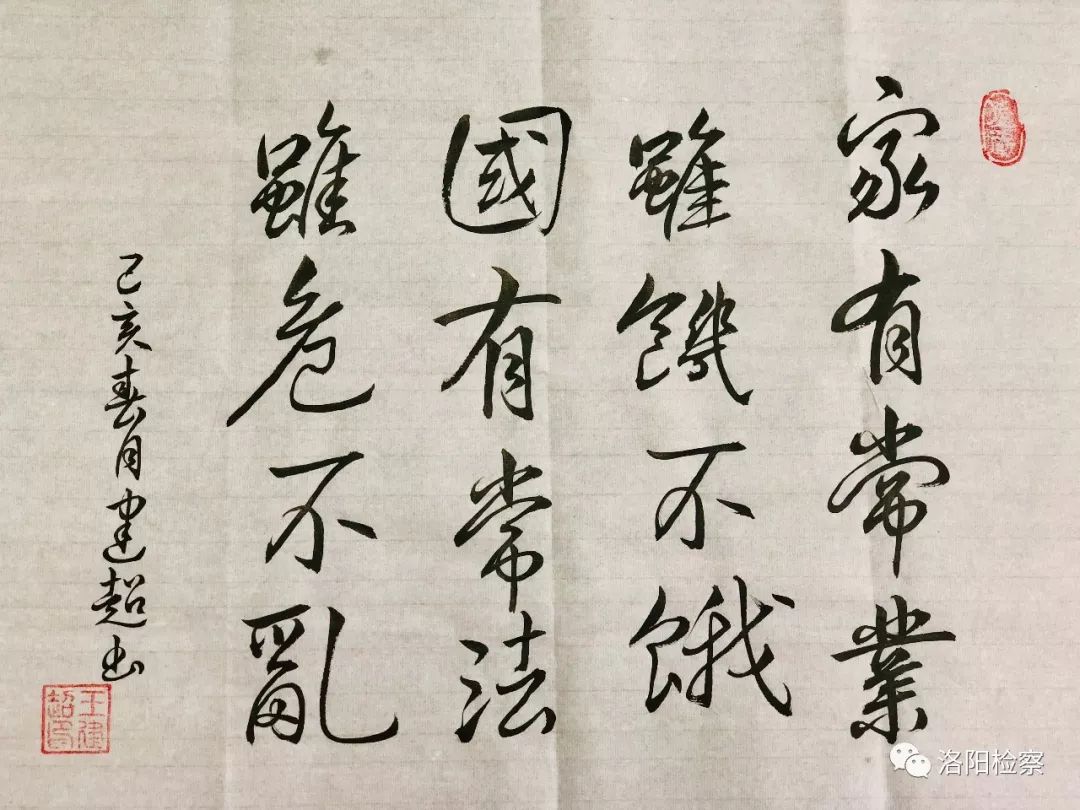 家有常業
雖饑不餓
國有常法
雖危不亂
己亥春月建超书
王建超印
洛阳检察